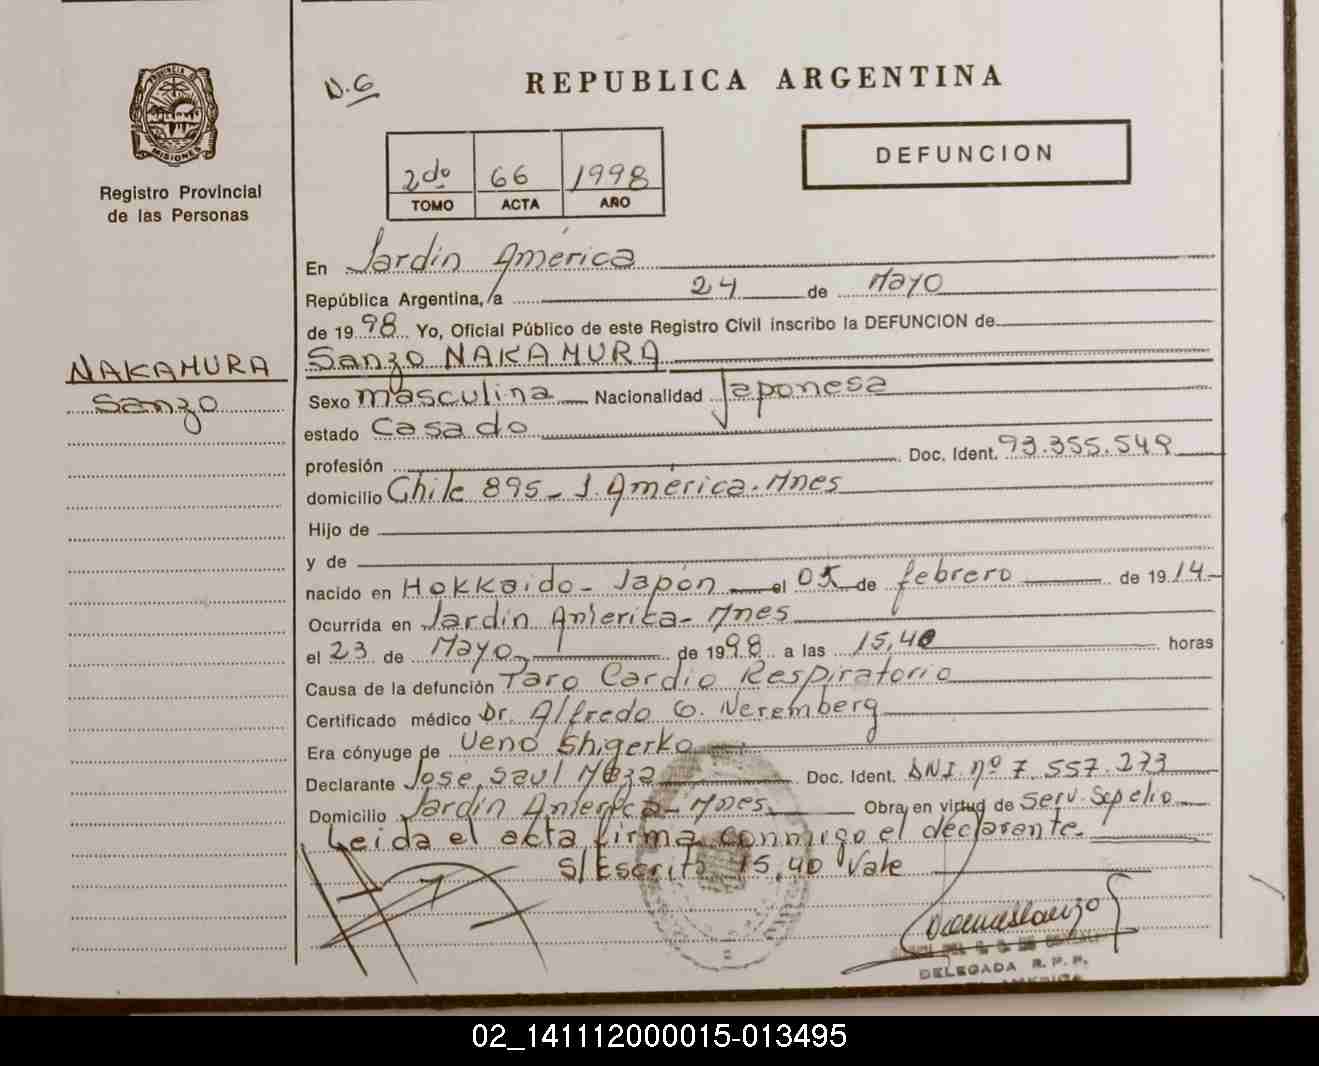 PROVINCIA DE
MISIONES
Registro Provincial
de las Personas
NAKAMURA
Sanzo
D.G
REPUBLICA ARGENTINA
2do 66 1998
TOMO ACTA AÑO
DEFUNCION
En Jardín América
República Argentina, a 24 de Mayo
de 1998 Yo, Oficial Público de este Registro Civil inscribo la DEFUNCION de
Sanzo NAKAMURA
Sexo masculina Nacionalidad Japonesa
estado Casado
profesión Doc. Ident. 93.355.549
domicilio Chile 895 - J. América. Mnes
Hijo de
y de
nacido en Hokkaido - Japón el 05 de febrero de 1914
Ocurrida en Jardín América - Mnes
el 23 de Mayo de 1998 a las 15,40 horas
Causa de la defunción Paro Cardio Respiratorio
Certificado médico Dr. Alfredo G. Neremberg
Era cónyuge de Ueno Shigerko
Declarante José Saul Meza Doc. Ident. DNI nº 7.557.273
Domicilio Jardín América - Mnes. Obra en virtud de Serv. Sepelio
Leida el acta firma conmigo el declarante.
S/Escrito 15,40 Vale
DELEGADA R.P.P.
AMERICA
02_141112000015-013495